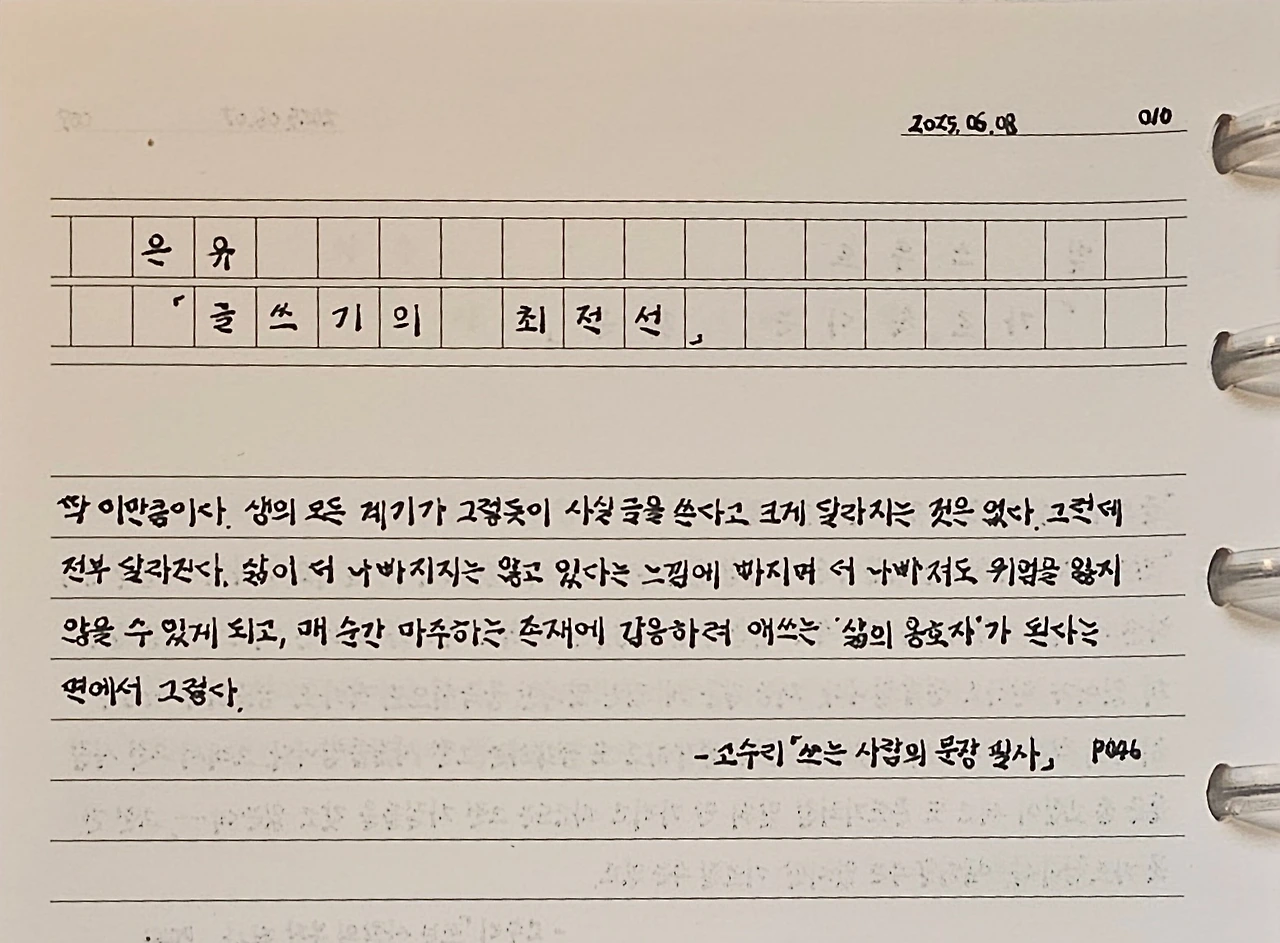 2025.06.08 010
은유
「글쓰기의 최전선」
딱 이만큼이다. 생의 모든 계기가 그렇듯이 사실 글을 쓴다고 크게 달라지는 것은 없다. 그런데
전부 달라진다. 삶이 더 나빠지지는 않고 있다는 느낌에 빠지며 더 나빠져도 위엄을 잃지
않을 수 있게 되고, 매 순간 마주하는 존재에 감응하려 애쓰는 '삶의 옹호자'가 된다는
면에서 그렇다.
-고수리「쓰는 사람의 문장 필사」 P046